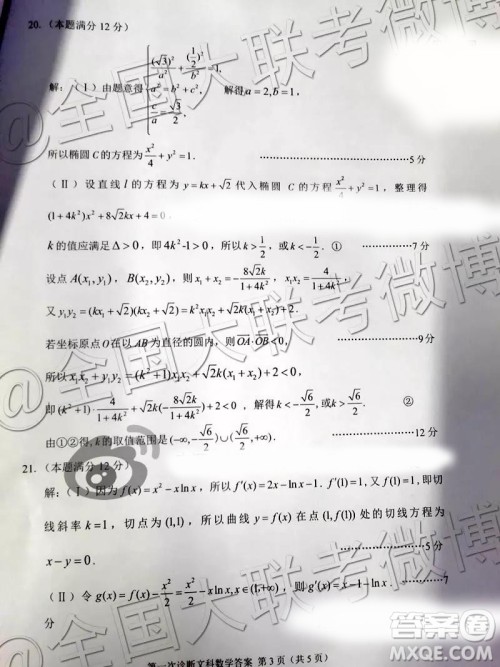 20.（本题满分 12 分）
解:（Ⅰ）由题意得 { (√3)²/a² + (1/2)²/b² = 1, a² = b² + c², c/a = √3/2, 解得 a = 2, b = 1,
所以椭圆 C 的方程为 x²/4 + y² = 1. ··················5 分
（Ⅱ）设直线 l 的方程为 y = kx + √2 代入椭圆 C 的方程 x²/4 + y² = 1，整理得
(1+4k²)x² + 8√2kx + 4 = 0.
k 的值应满足 Δ > 0，即 4k²-1>0，所以 k > 1/2，或 k < -1/2. ① ··············7 分
设点 A(x₁, y₁)，B(x₂, y₂)，则 x₁ + x₂ = -8√2k/(1+4k²)，x₁x₂ = 4/(1+4k²)，
又 y₁y₂ = (kx₁ + √2)(kx₂ + √2) = k²x₁x₂ + √2k(x₁ + x₂) + 2.
若坐标原点 O 在以 AB 为直径的圆内，则 OA·OB<0， ··············9 分
所以 x₁x₂ + y₁y₂ = (k²+1)x₁x₂ + √2k(x₁ + x₂) + 2 < 0，
即 (k²+1)· 4/(1+4k²) + √2k(-8√2k/(1+4k²)) + 2 < 0，解得 k > √6/2，或 k < -√6/2. ②
由①②得, k 的取值范围是 (-∞, -√6/2)∪(√6/2, +∞). ··············12 分
21.（本题满分 12 分）
解:（Ⅰ）因为 f(x) = x² - x ln x，所以 f′(x) = 2x - ln x - 1. 又 f(x)，即切
线斜率 k = 1，切点为 (1,1)，所以曲线 y = f(x) 在点 (1, f(1)) 处的切线方程为
x - y = 0. ··············5 分
（Ⅱ）令 g(x) = f(x) - x²/2 = x²/2 - x ln x, x∈(1, +∞)，则 g′(x) = x - 1 - ln x. ··············7
分
第一次诊断文科数学答案 第 3 页（共 5 页）
@全国大联考微博
@全国大联考微博
作业帮